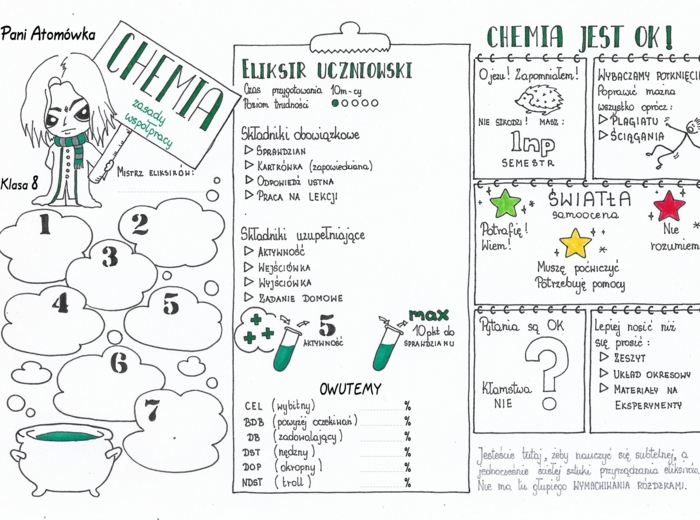 Pani Atomówka
CHEMIA
zasady
współpracy
Mistrz eliksirów:
Klasa 8
1
2
3
4
5
6
7
ELIKSIR UCZNIOWSKI
Czas przygotowania 10m-cy
Poziom trudności
Składniki obowiązkowe
SPRAWDZIAN
KARTKÓWKA (zapowiedziana)
ODPOWIEDŹ USTNA
PRACA NA LEKCJI
Składniki uzupełniające
AKTYWNOŚĆ
WEJŚCIÓWKA
WYJŚCIÓWKA
ZADANIE DOMOWE
5
AKTYWNOŚĆ
max
10 pkt do
SPRAWDZIANU
OWUTEMY
CEL (wybitny) %
BDB (powyżej oczekiwań) %
DB (zadowalający) %
DST (nędzny) %
DOP (okropny) %
NDST (troll) %
CHEMIA JEST OK!
O jezu! Zapomniałem!
NIE SZKODZI! MASZ:
1np
SEMESTR
WYBACZAMY POTKNIĘCIA
Poprawić można
wszystko oprócz:
PLAGIATU
ŚCIĄGANIA
ŚWIATŁA
samoocena
Potrafię!
Wiem!
Nie
rozumiem
Muszę poćwiczyć
Potrzebuję pomocy
Pytania są OK
?
Kłamstwa
NIE
Lepiej nosić niż
się prosić:
ZESZYT
UKŁAD OKRESOWY
MATERIAŁY NA
EKSPERYMENTY
Jesteście tutaj, żeby nauczyć się subtelnej, a
jednocześnie ścisłej sztuki przyrządzania eliksirów.
Nie ma tu głupiego WYMACHIWANIA RÓŻDŻKAMI.